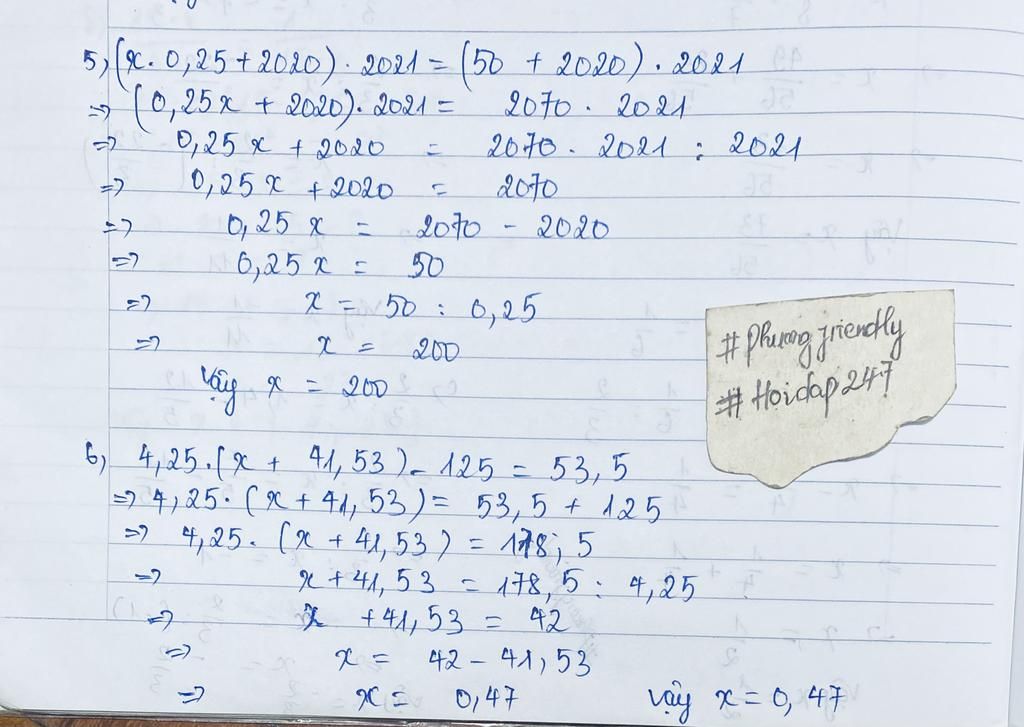 5, (x. 0,25 + 2020) . 2021 = (50 + 2020) . 2021
=> (0,25x + 2020). 2021 = 2070 . 2021
=> 0,25x + 2020 = 2070 . 2021 : 2021
=> 0,25x + 2020 = 2070
=> 0,25x = 2070 - 2020
=> 0,25x = 50
=> x = 50 : 0,25
=> x = 200
Vậy x = 200
# Phương friendly
# Hoidap247
6, 4,25.(x + 41,53) - 125 = 53,5
=> 4,25. (x + 41,53) = 53,5 + 125
=> 4,25. (x + 41,53) = 178,5
=> x + 41,53 = 178,5 : 4,25
=> x + 41,53 = 42
=> x = 42 - 41,53
=> x = 0,47 Vậy x = 0,47